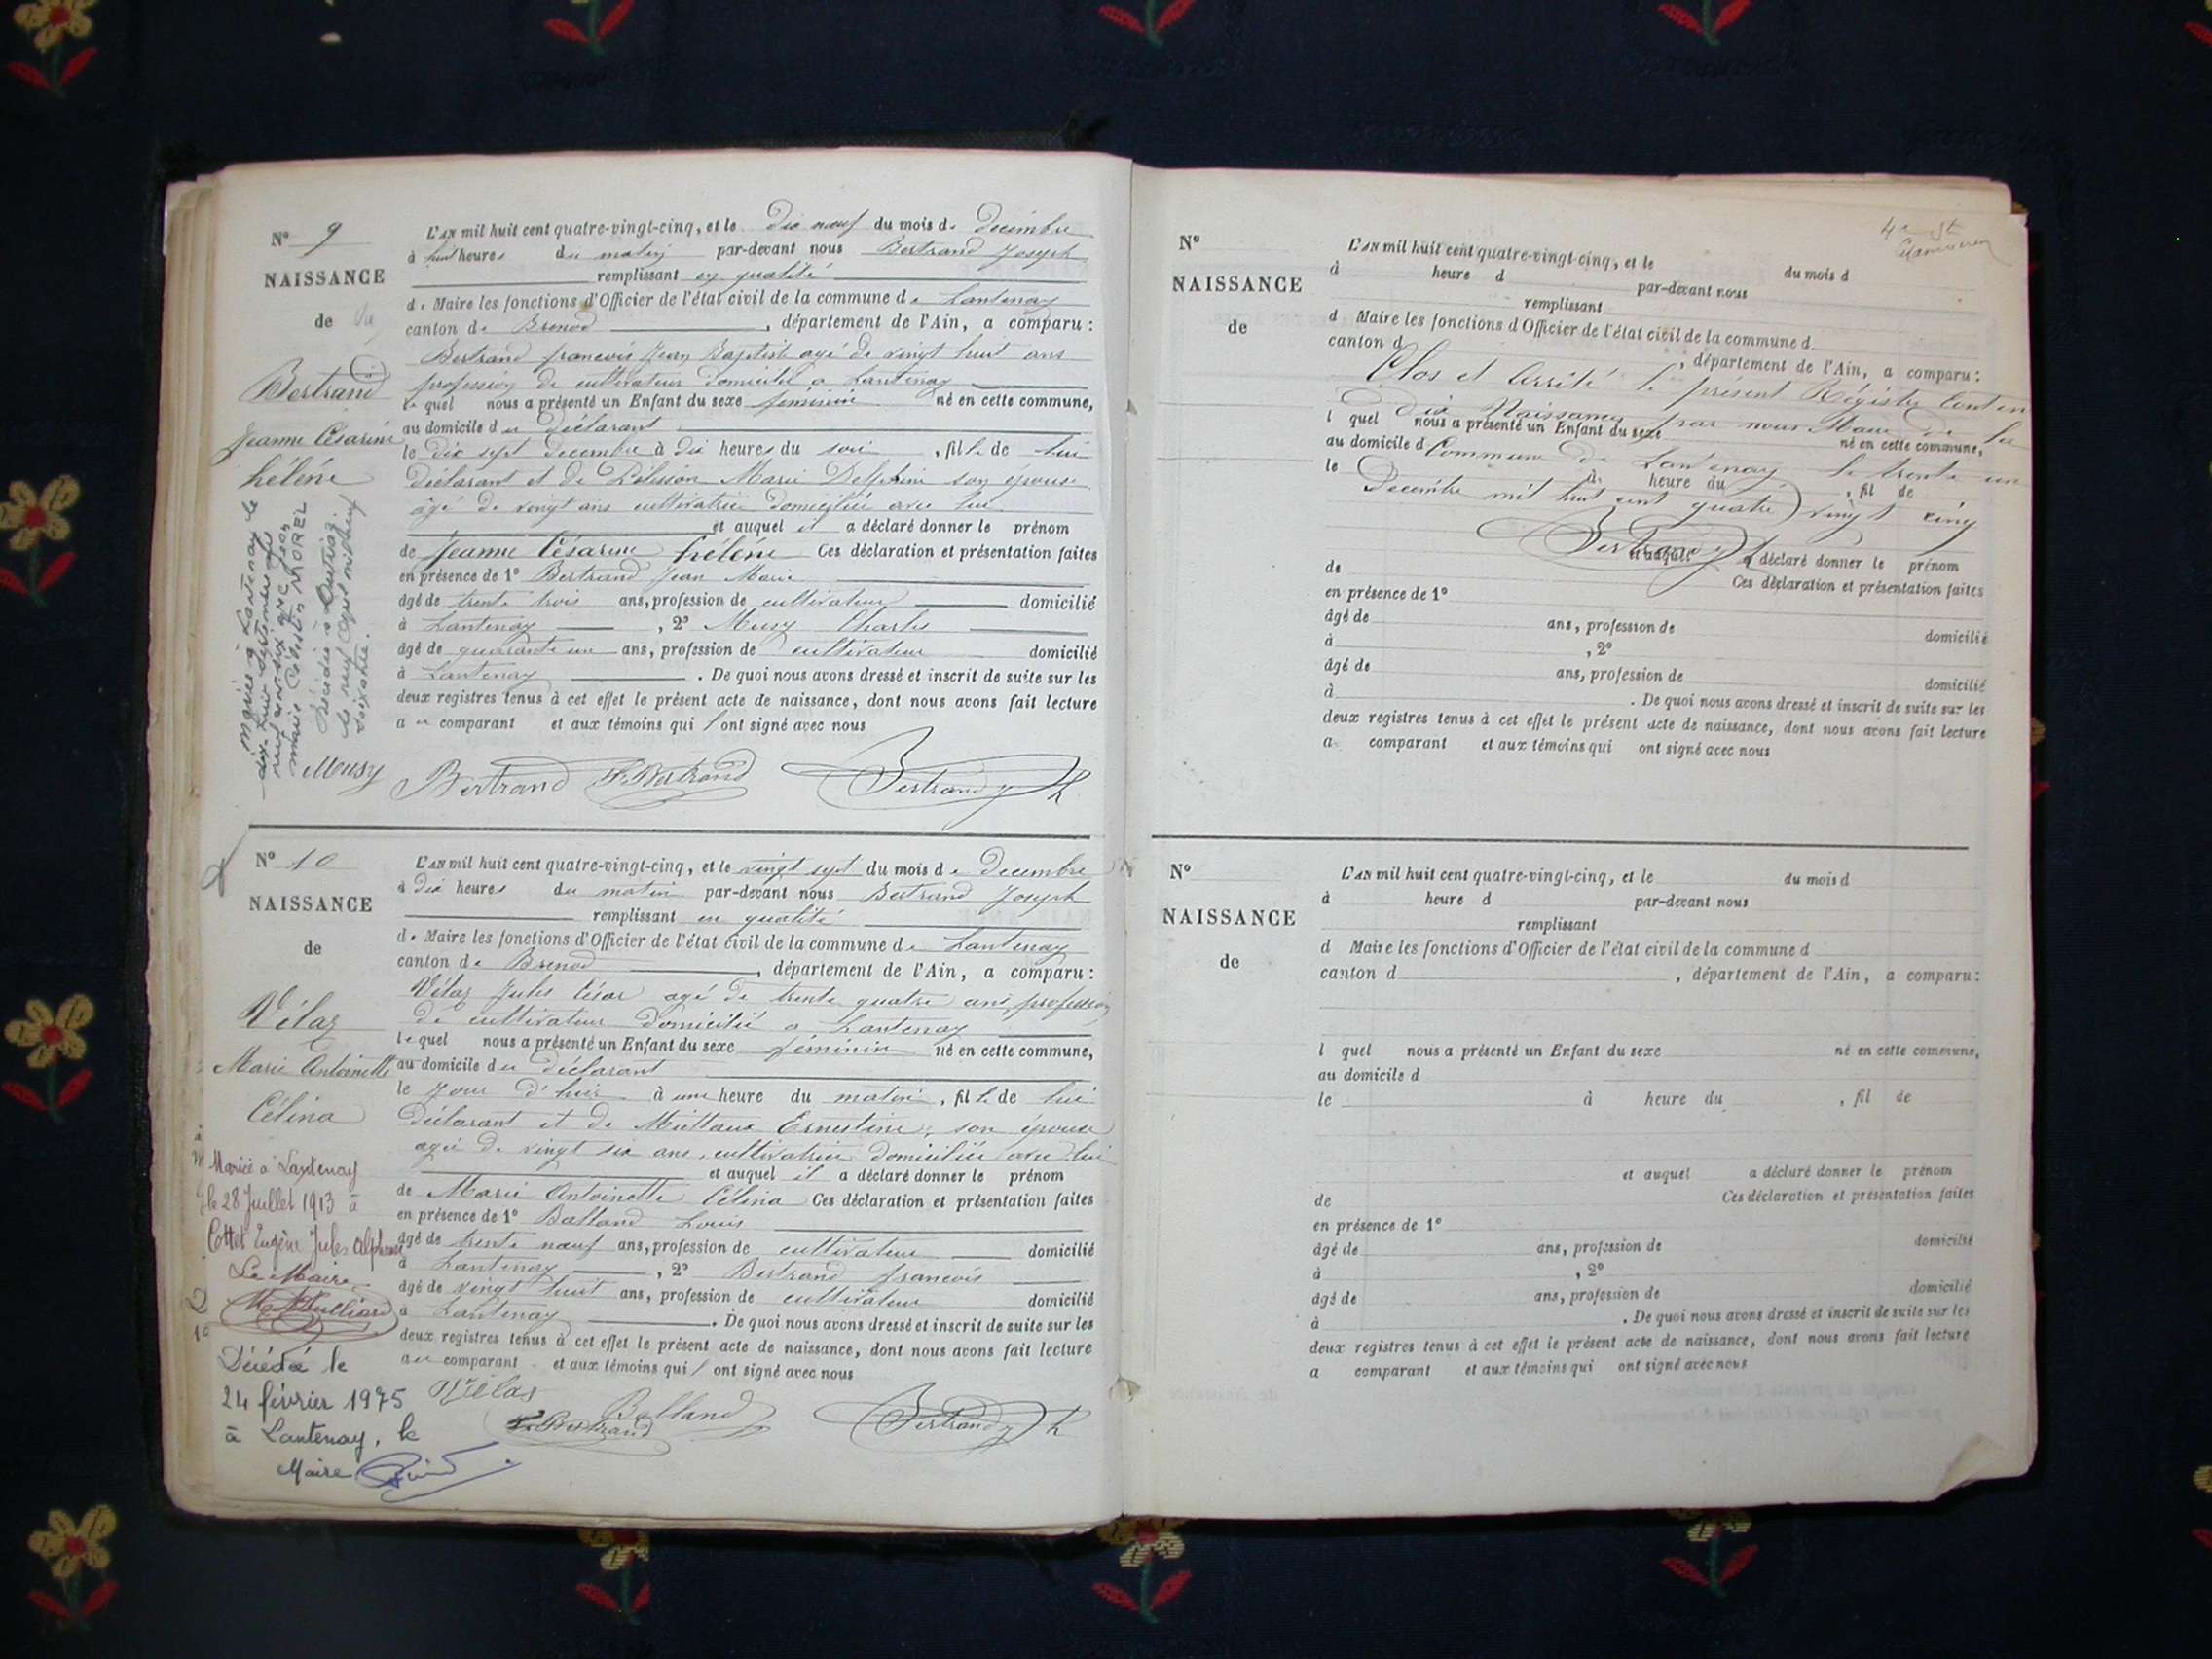 N° 9
NAISSANCE
de
Bertrand
Jeanne Césarine
hélène
Mariée à Lantenay le
MOREL
Décédée à
le neuf
soixante.
L'AN mil huit cent quatre-vingt-cinq, et le dix neuf du mois de Décembre
à huit heures du matin par-devant nous Bertrand Joseph
remplissant en qualité
de Maire les fonctions d'Officier de l'état civil de la commune de Lantenay
canton de Brenod, département de l'Ain, a comparu :
Bertrand francois Jean Baptiste agé de vingt huit ans
profession de cultivateur domicilié a Lantenay
le quel nous a présenté un Enfant du sexe féminin né en cette commune,
au domicile du déclarant
le dix sept Decembre à dix heures du soir, fille de lui
déclarant et de Marie Delphine son épouse
âgé de vingt ans cultivatrice domiciliée avec lui
et auquel il a déclaré donner le prénom
de Jeanne Césarine hélène Ces déclaration et présentation faites
en présence de 1° Bertrand Jean Marie
âgé de trente trois ans, profession de cultivateur domicilié
à Lantenay, 2° Musy Charles
âgé de quarante un ans, profession de cultivateur domicilié
à Lantenay. De quoi nous avons dressé et inscrit de suite sur les
deux registres tenus à cet effet le présent acte de naissance, dont nous avons fait lecture
au comparant et aux témoins qui l'ont signé avec nous
Musy Bertrand F. Bertrand Bertrand Jh
N° 10
NAISSANCE
de
Vélaz
Marie Antoinette
Célina
Mariée à Lantenay
le 28 Juillet 1913 à
Cottet Eugène Jules Alphonse
Le Maire
Décédée le
24 février 1975
à Lantenay, le
Maire
L'AN mil huit cent quatre-vingt-cinq, et le vingt sept du mois de Decembre
à dix heures du matin par-devant nous Bertrand Joseph
remplissant en qualité
de Maire les fonctions d'Officier de l'état civil de la commune de Lantenay
canton de Brenod, département de l'Ain, a comparu :
Vélaz Jules César agé de trente quatre ans, profession
de cultivateur domicilié a Lantenay
le quel nous a présenté un Enfant du sexe féminin né en cette commune,
au domicile du déclarant
le jour d'hui à une heure du matin, fille de lui
déclarant et de Ernestine, son épouse
agée de vingt six ans, cultivatrice domiciliée avec lui
et auquel il a déclaré donner le prénom
de Marie Antoinette Célina Ces déclaration et présentation faites
en présence de 1° Balland Louis
âgé de trente neuf ans, profession de cultivateur domicilié
à Lantenay, 2° Bertrand francois
âgé de vingt huit ans, profession de cultivateur domicilié
à Lantenay. De quoi nous avons dressé et inscrit de suite sur les
deux registres tenus à cet effet le présent acte de naissance, dont nous avons fait lecture
au comparant et aux témoins qui l'ont signé avec nous
Vélas Balland
F. Bertrand Bertrand Jh
N°
NAISSANCE
de
L'AN mil huit cent quatre-vingt-cinq, et le du mois d
à heure d par-devant nous
remplissant
d Maire les fonctions d'Officier de l'état civil de la commune d
canton d, département de l'Ain, a comparu :
Clos et Arrêté le présent Régistre
dix Naissances par nous Maire de la
l quel nous a présenté un Enfant du sexe né en cette commune,
au domicile d Commune de Lantenay le trente un
le à heure du, fil de
Decembre mil huit cent quatre vingt cinq
Bertrand Jh
et auquel a déclaré donner le prénom
de Ces déclaration et présentation faites
en présence de 1°
âgé de ans, profession de domicilié
à, 2°
âgé de ans, profession de domicilié
à. De quoi nous avons dressé et inscrit de suite sur les
deux registres tenus à cet effet le présent acte de naissance, dont nous avons fait lecture
a comparant et aux témoins qui ont signé avec nous
N°
NAISSANCE
de
L'AN mil huit cent quatre-vingt-cinq, et le du mois d
à heure d par-devant nous
remplissant
d Maire les fonctions d'Officier de l'état civil de la commune d
canton d, département de l'Ain, a comparu :
l quel nous a présenté un Enfant du sexe né en cette commune,
au domicile d
le à heure du, fil de
et auquel a déclaré donner le prénom
de Ces déclaration et présentation faites
en présence de 1°
âgé de ans, profession de domicilié
à, 2°
âgé de ans, profession de domicilié
à. De quoi nous avons dressé et inscrit de suite sur les
deux registres tenus à cet effet le présent acte de naissance, dont nous avons fait lecture
a comparant et aux témoins qui ont signé avec nous